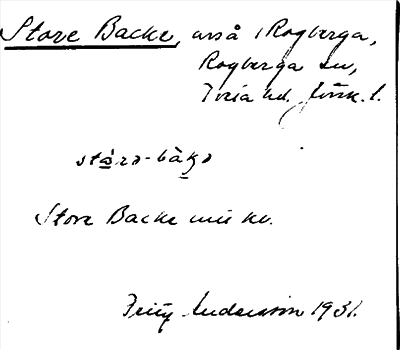 Store Backe, även i Rogberga,
Rogberga sn,
Tveta hd. Jönk. l.
stårə-bàkə
Store Backe
Fritz Andersson 1931.